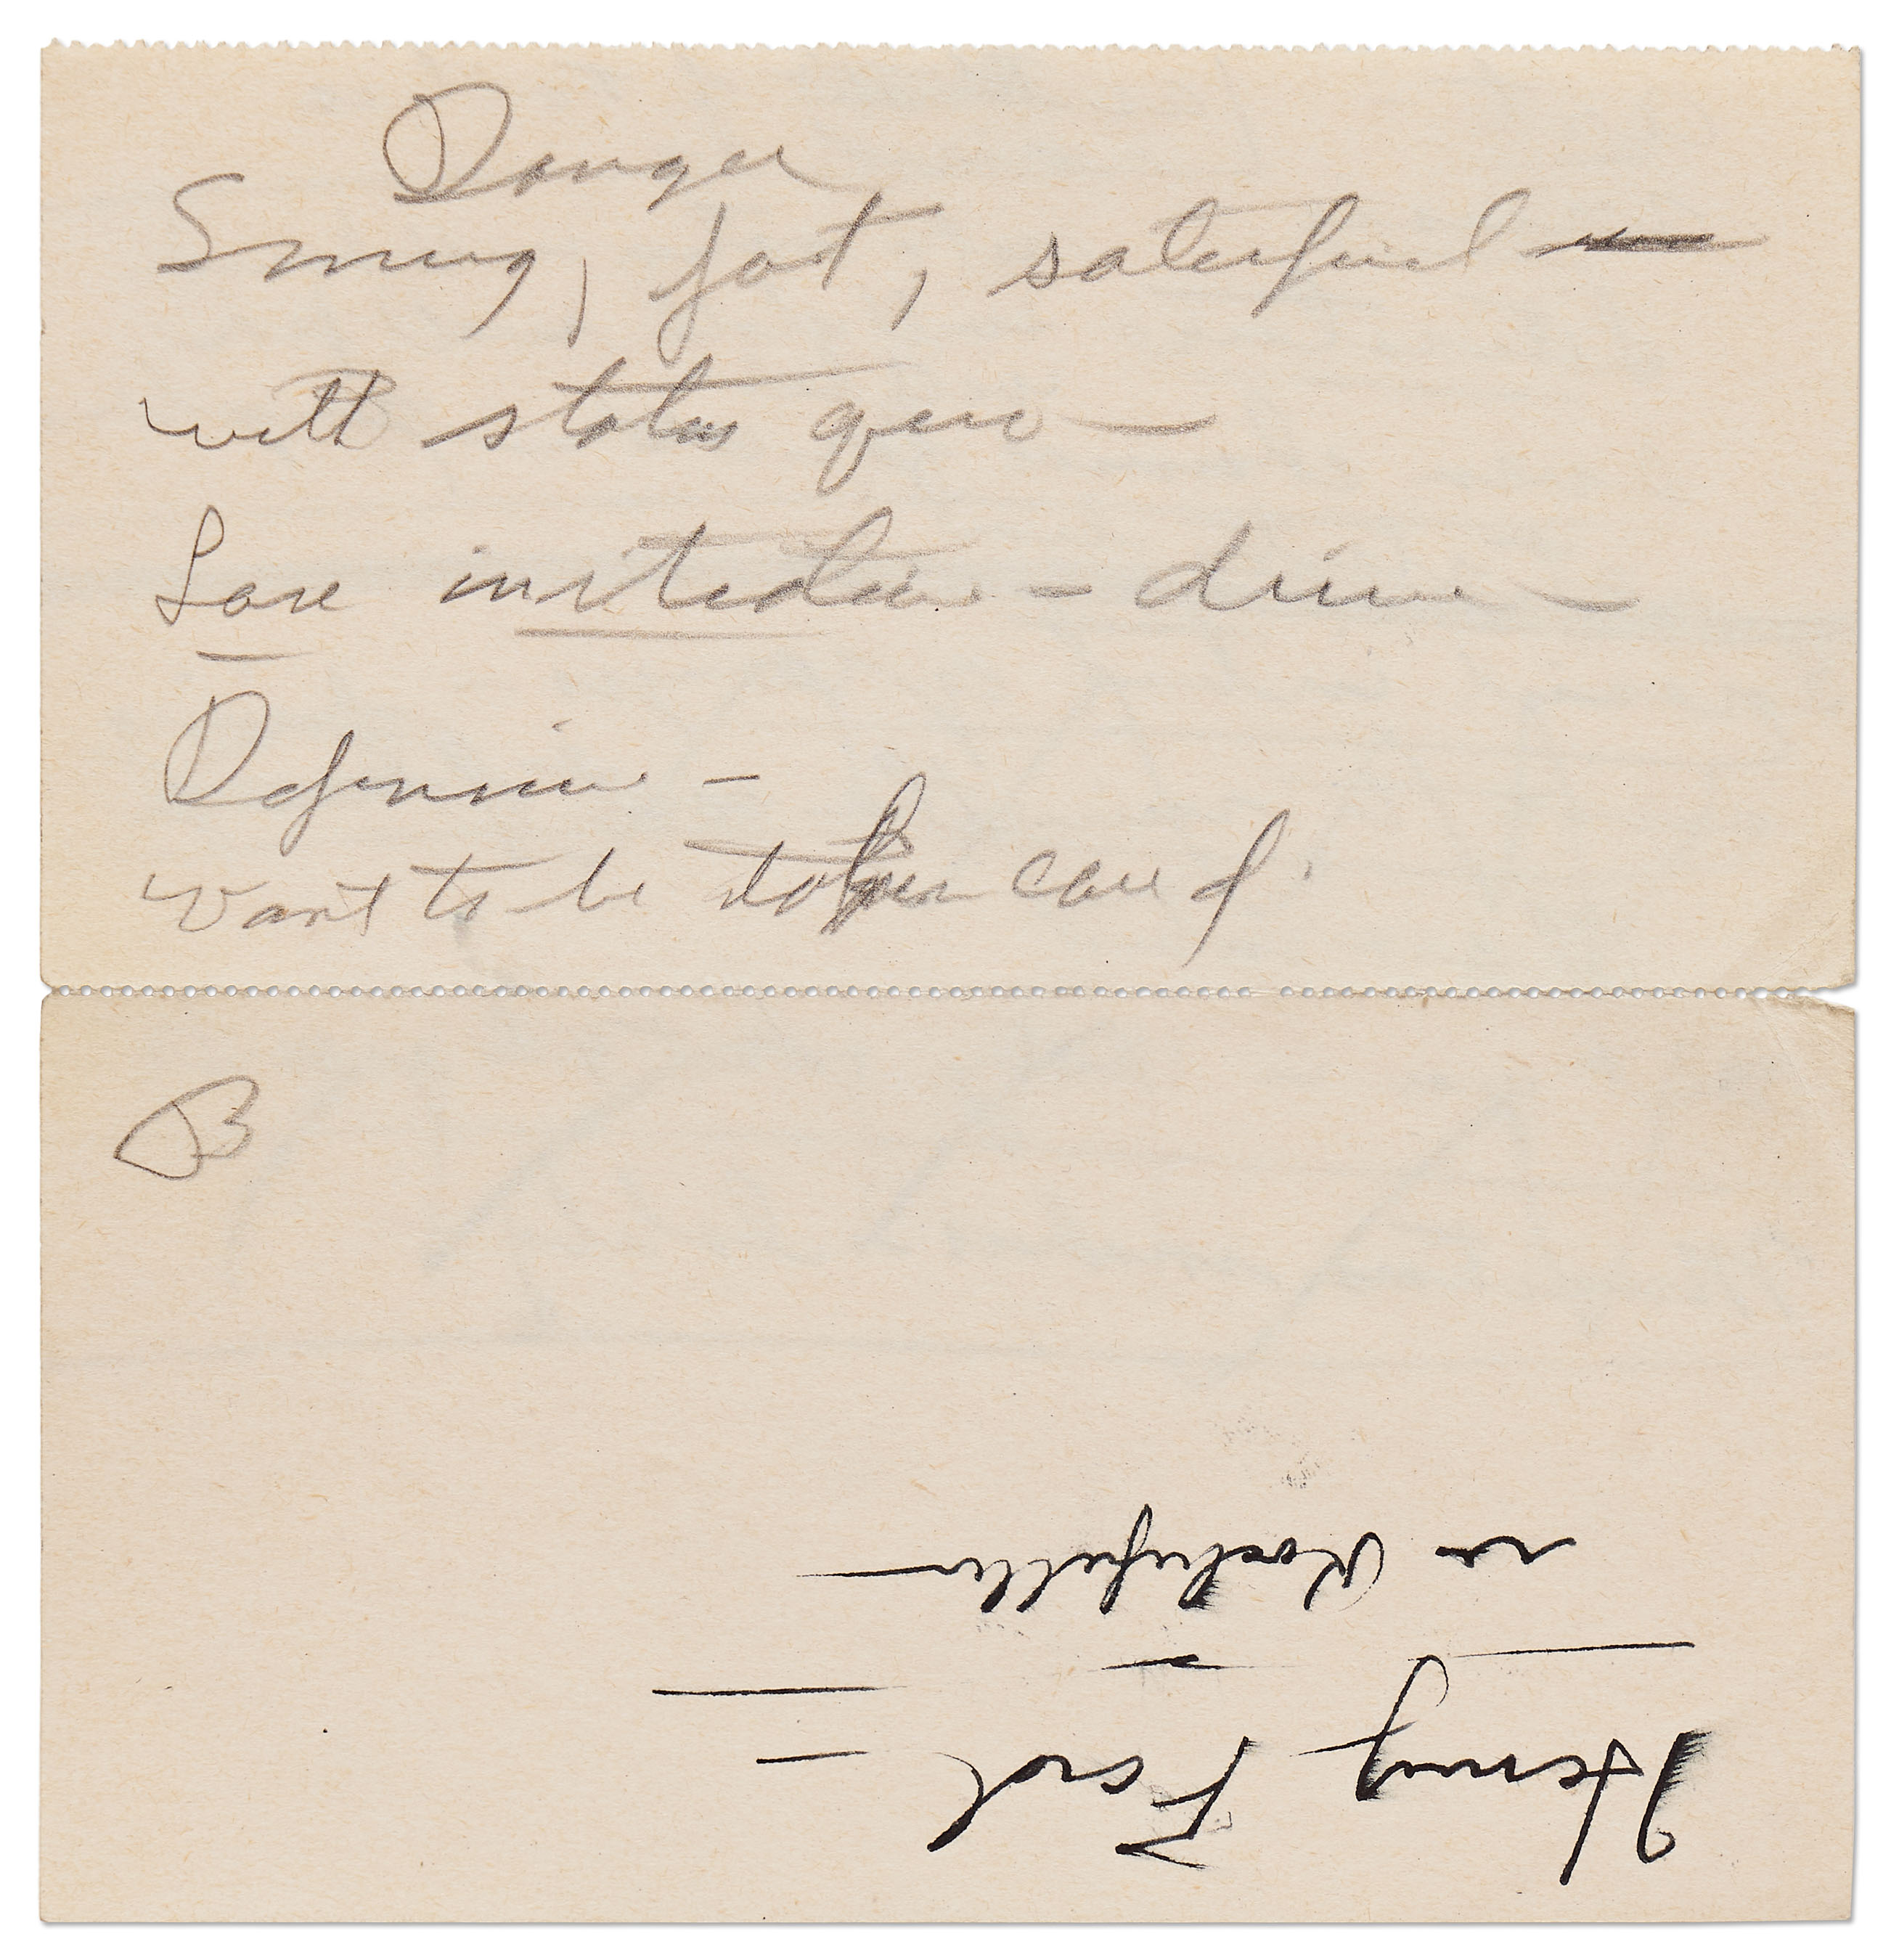 Danger
Smug, fat, satisfied —
with status quo —
Lose initiative - drive -
Defensive -
want to be taken care of.
B
Henry Ford -
no Rockefeller